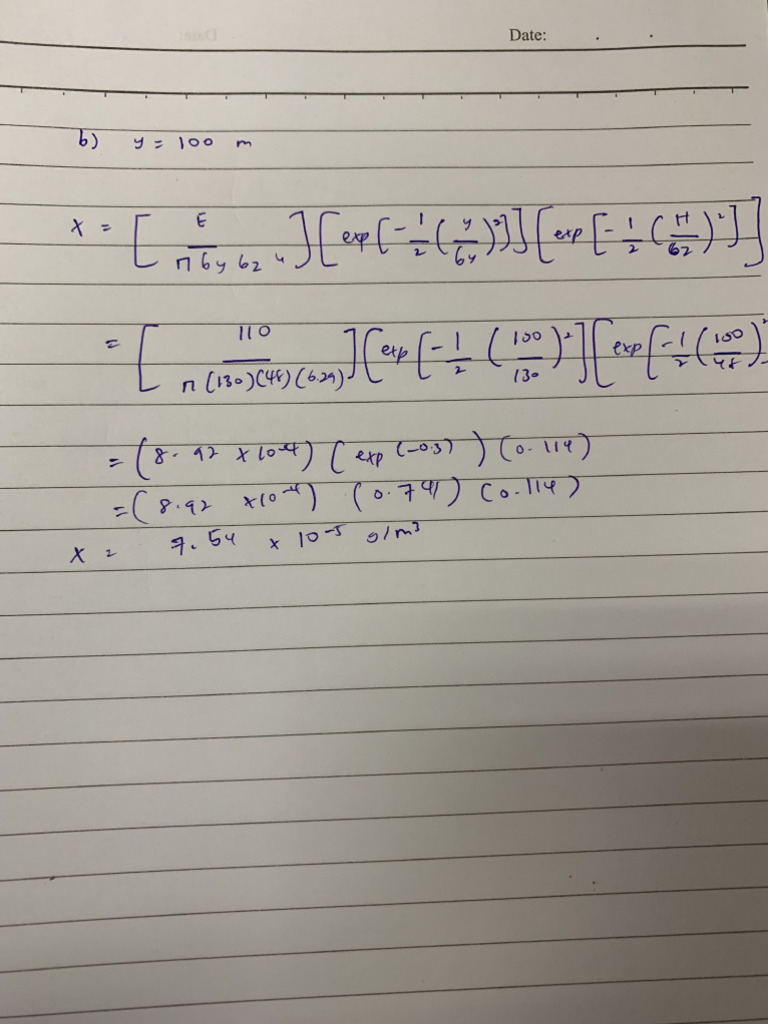 Date: . .
b) y = 100 m
x = [ E / π бy бz u ] [ exp [ -1/2 ( y / бy )²] ] [ exp [ -1/2 ( H / бz )² ] ]
= [ 110 / π (130)(48)(6.29) ] [ exp [ -1/2 ( 100 / 130 )² ] [ exp [ -1/2 ( 100 / 48 )²
= (8.92 x 10-4) ( exp (-0.3) ) (0.114)
= ( 8.92 x10-4) (0.741) (0.114)
x = 7.54 x 10-5 g/m3